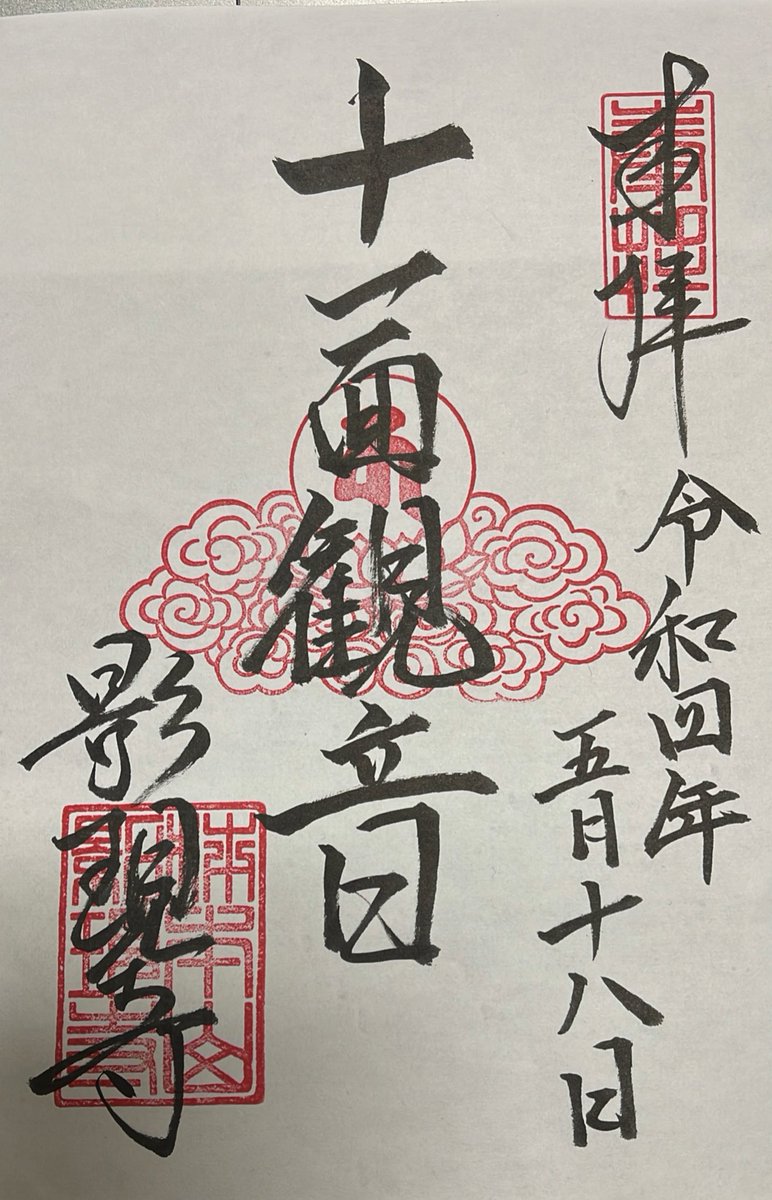 奉拝
令和四年
五月十八日
十一面観音
影現寺